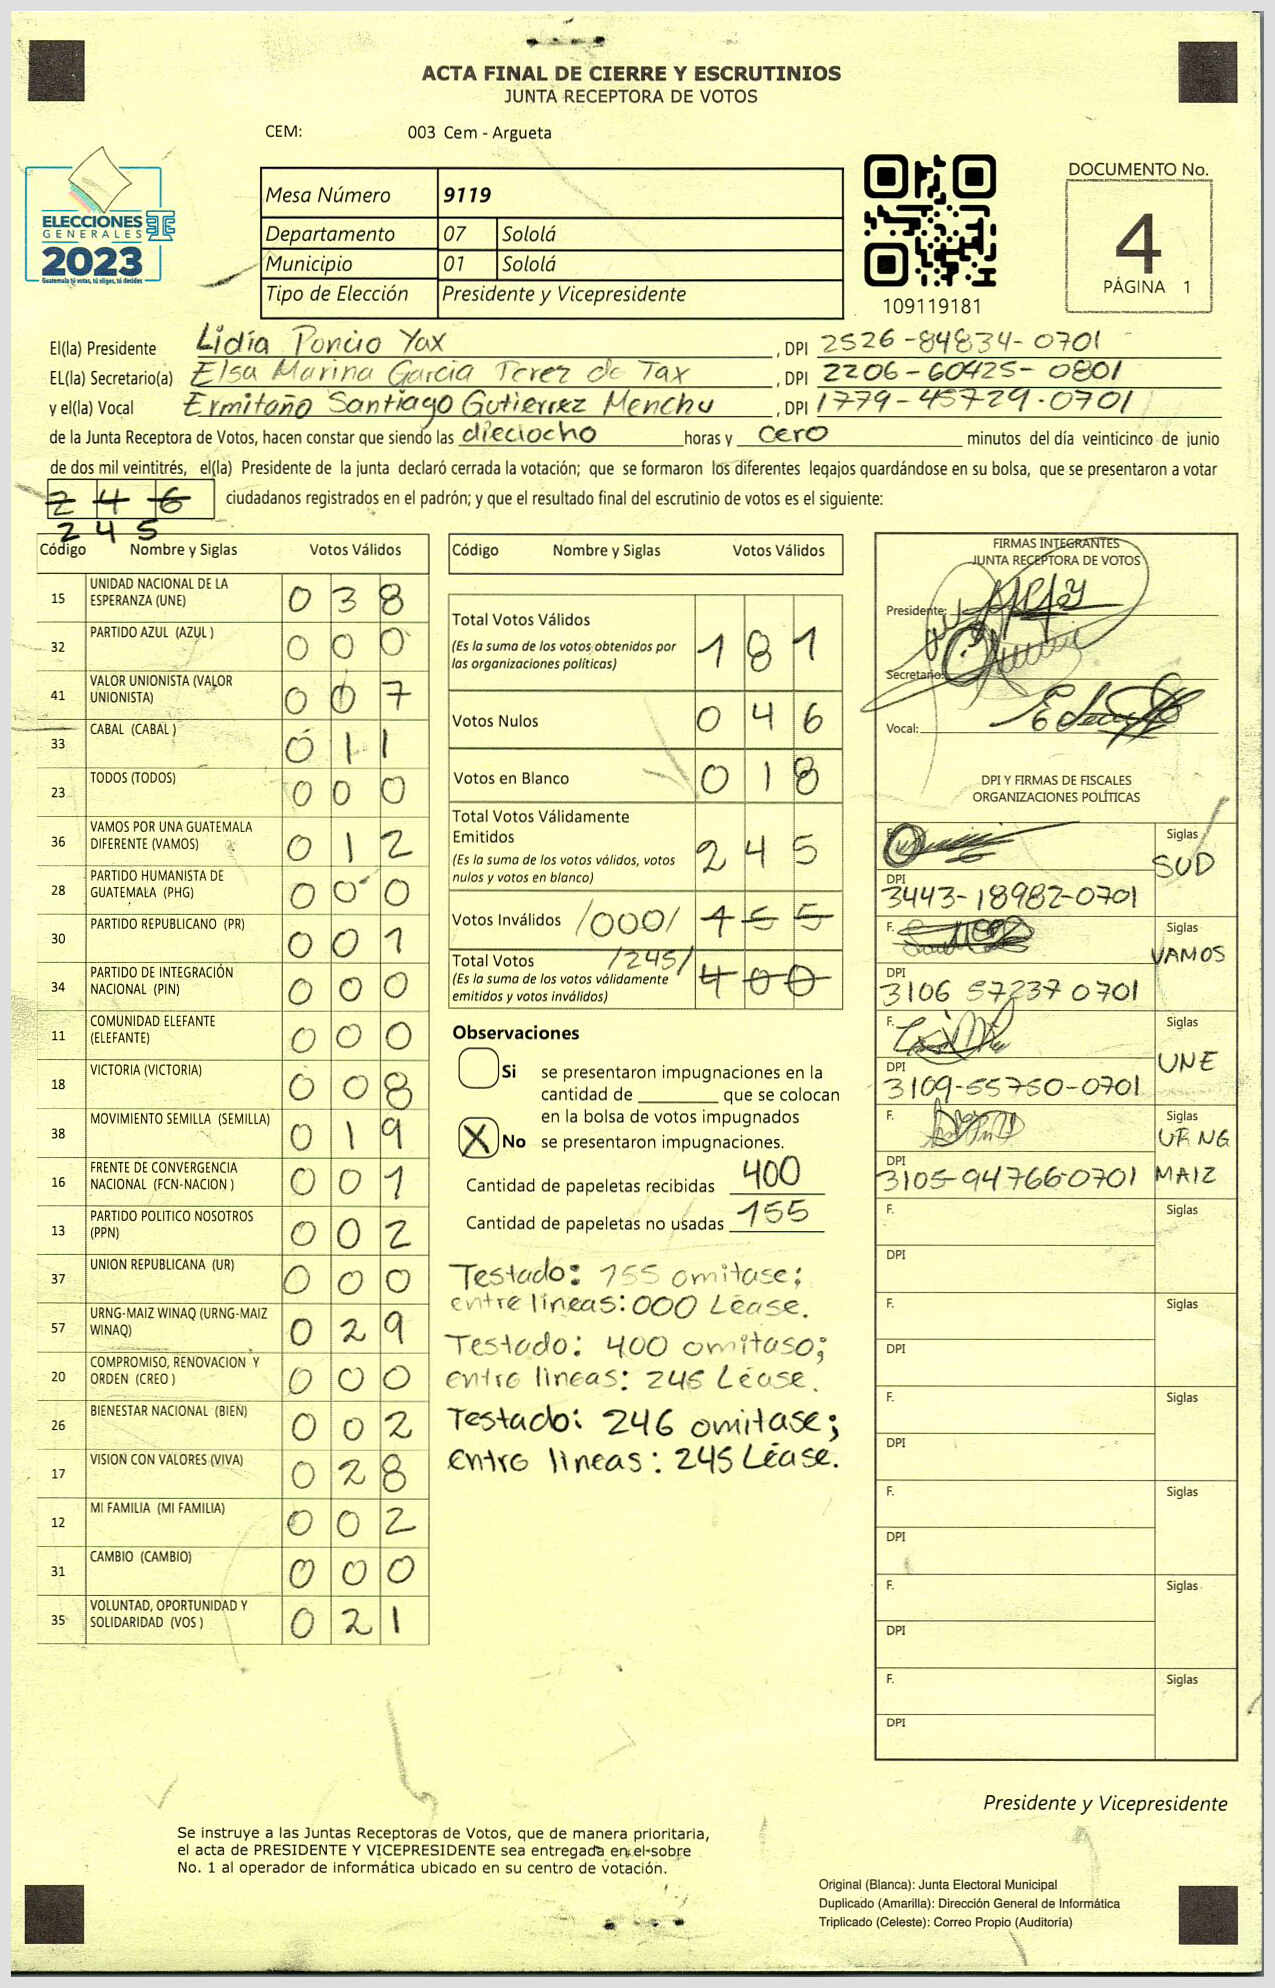 ACTA FINAL DE CIERRE Y ESCRUTINIOS
JUNTA RECEPTORA DE VOTOS
CEM: 003 Cem - Argueta
ELECCIONES
GENERALES
2023
Guatemala tú votas, tú eliges, tú decides
Mesa Número 9119
Departamento 07 Sololá
Municipio 01 Sololá
Tipo de Elección Presidente y Vicepresidente
109119181
DOCUMENTO No.
4
PÁGINA 1
El(la) Presidente Lidia Poncio Yax , DPI 2526-84834-0701
EL(la) Secretario(a) Elsa Marina Garcia Perez de Tax , DPI 2206-60425-0801
y el(la) Vocal Ermitaño Santiago Gutierrez Menchu , DPI 1779-45729-0701
de la Junta Receptora de Votos, hacen constar que siendo las dieciocho horas y cero minutos del día veinticinco de junio
de dos mil veintitrés, el(la) Presidente de la junta declaró cerrada la votación; que se formaron los diferentes legajos quardándose en su bolsa, que se presentaron a votar
246 ciudadanos registrados en el padrón; y que el resultado final del escrutinio de votos es el siguiente:
245
Código Nombre y Siglas Votos Válidos
15 UNIDAD NACIONAL DE LA ESPERANZA (UNE) 038
32 PARTIDO AZUL (AZUL ) 000
41 VALOR UNIONISTA (VALOR UNIONISTA) 007
33 CABAL (CABAL ) 011
23 TODOS (TODOS) 000
36 VAMOS POR UNA GUATEMALA DIFERENTE (VAMOS) 012
28 PARTIDO HUMANISTA DE GUATEMALA (PHG) 000
30 PARTIDO REPUBLICANO (PR) 001
34 PARTIDO DE INTEGRACIÓN NACIONAL (PIN) 000
11 COMUNIDAD ELEFANTE (ELEFANTE) 000
18 VICTORIA (VICTORIA) 008
38 MOVIMIENTO SEMILLA (SEMILLA) 019
16 FRENTE DE CONVERGENCIA NACIONAL (FCN-NACION ) 001
13 PARTIDO POLITICO NOSOTROS (PPN) 002
37 UNION REPUBLICANA (UR) 000
57 URNG-MAIZ WINAQ (URNG-MAIZ WINAQ) 029
20 COMPROMISO, RENOVACION Y ORDEN (CREO ) 000
26 BIENESTAR NACIONAL (BIEN) 002
17 VISION CON VALORES (VIVA) 028
12 MI FAMILIA (MI FAMILIA) 002
31 CAMBIO (CAMBIO) 000
35 VOLUNTAD, OPORTUNIDAD Y SOLIDARIDAD (VOS ) 021
Código Nombre y Siglas Votos Válidos
Total Votos Válidos 181
(Es la suma de los votos obtenidos por
las organizaciones políticas)
Votos Nulos 046
Votos en Blanco 018
Total Votos Válidamente
Emitidos 245
(Es la suma de los votos válidos, votos
nulos y votos en blanco)
Votos Inválidos /000/ 155
Total Votos /245/ 400
(Es la suma de los votos válidamente
emitidos y votos inválidos)
Observaciones
Si se presentaron impugnaciones en la
cantidad de ________ que se colocan
en la bolsa de votos impugnados
X No se presentaron impugnaciones.
Cantidad de papeletas recibidas 400
Cantidad de papeletas no usadas 155
Testado: 155 omitase;
entre lineas: 000 Léase.
Testado: 400 omitaso;
entre lineas: 245 Léase.
Testado: 246 omitase;
entre lineas: 245 Léase.
FIRMAS INTEGRANTES
JUNTA RECEPTORA DE VOTOS
Presidente:
Secretario:
Vocal:
DPI Y FIRMAS DE FISCALES
ORGANIZACIONES POLÍTICAS
F. Siglas
SUD
DPI
3443-18982-0701
F. Siglas
VAMOS
DPI
3106 57237 0701
F. Siglas
UNE
DPI
3109-55750-0701
F. Siglas
URNG
DPI
3105-94766-0701 MAIZ
F. Siglas
DPI
F. Siglas
DPI
F. Siglas
DPI
F. Siglas
DPI
F. Siglas
DPI
F. Siglas
DPI
Presidente y Vicepresidente
Se instruye a las Juntas Receptoras de Votos, que de manera prioritaria,
el acta de PRESIDENTE Y VICEPRESIDENTE sea entregada en el sobre
No. 1 al operador de informática ubicado en su centro de votación.
Original (Blanca): Junta Electoral Municipal
Duplicado (Amarilla): Dirección General de Informática
Triplicado (Celeste): Correo Propio (Auditoría)